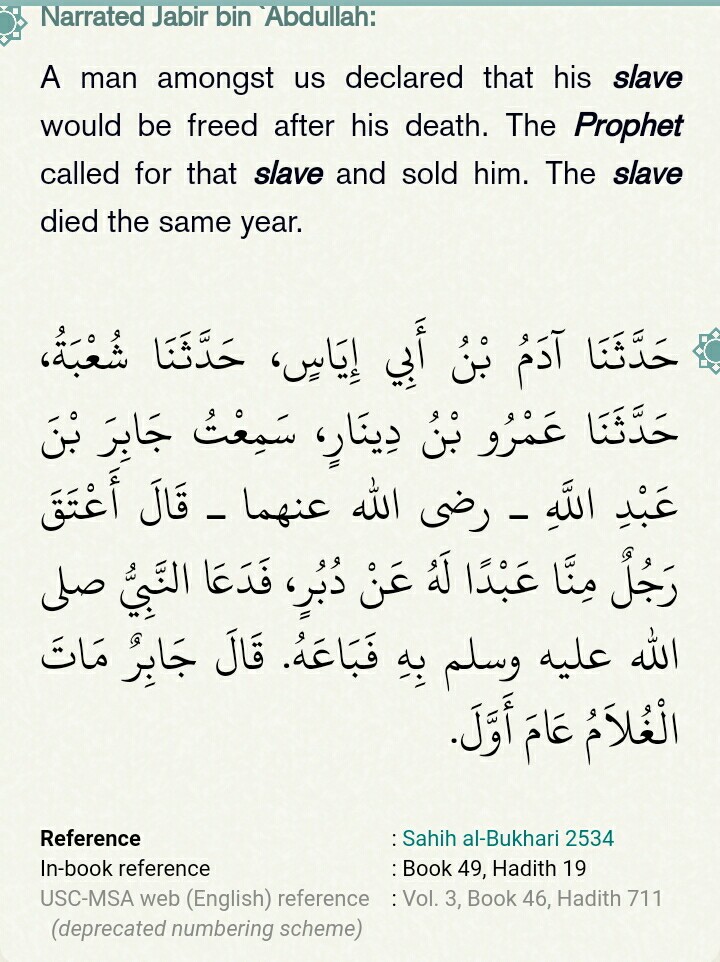 Narrated Jabir bin `Abdullah:
A man amongst us declared that his slave
would be freed after his death. The Prophet
called for that slave and sold him. The slave
died the same year.
حَدَّثَنَا آدَمُ بْنُ أَبِي إِيَاسٍ، حَدَّثَنَا شُعْبَةُ،
حَدَّثَنَا عَمْرُو بْنُ دِينَارٍ، سَمِعْتُ جَابِرَ بْنَ
عَبْدِ اللَّهِ ـ رضى الله عنهما ـ قَالَ أَعْتَقَ
رَجُلٌ مِنَّا عَبْدًا لَهُ عَنْ دُبُرٍ، فَدَعَا النَّبِيُّ صلى
الله عليه وسلم بِهِ فَبَاعَهُ. قَالَ جَابِرٌ مَاتَ
الْغُلاَمُ عَامَ أَوَّلَ.
Reference : Sahih al-Bukhari 2534
In-book reference : Book 49, Hadith 19
USC-MSA web (English) reference : Vol. 3, Book 46, Hadith 711
(deprecated numbering scheme)